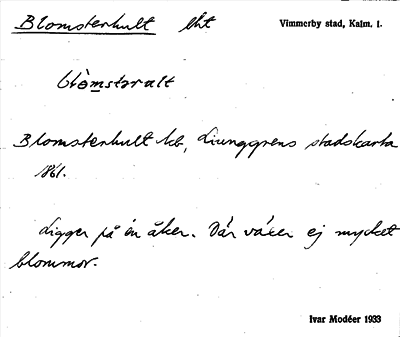 Blomsterhult lht Vimmerby stad, Kalm. l.
blòmstəralt
Blomsterhult lht, Ljunggrens stadskarta
1861.
Ligger på en åker. Där växer ej mycket
blommor.
Ivar Modéer 1933